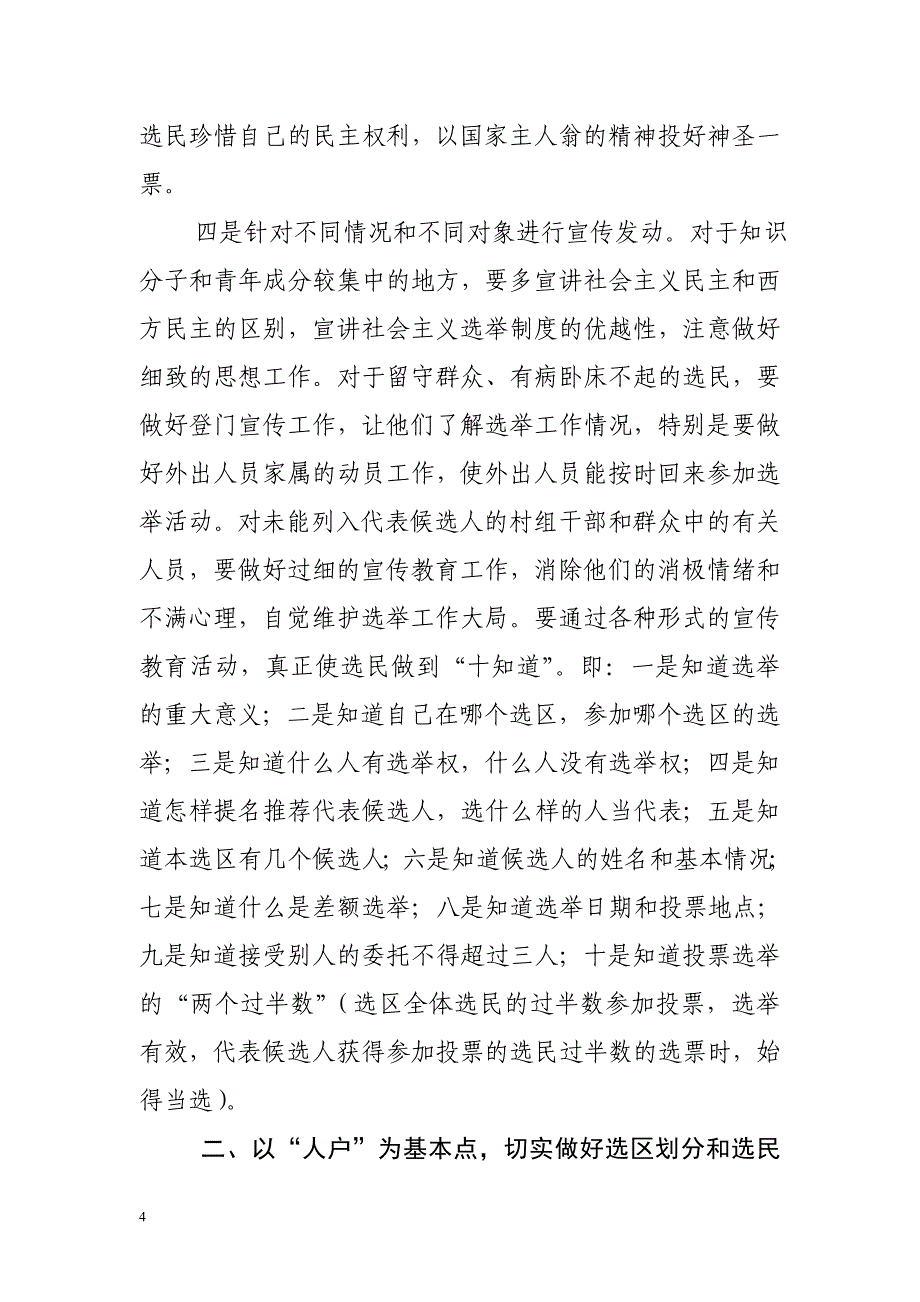 选民珍惜自己的民主权利，以国家主人翁的精神投好神圣一
票。
四是针对不同情况和不同对象进行宣传发动。对于知识
分子和青年成分较集中的地方，要多宣讲社会主义民主和西
方民主的区别，宣讲社会主义选举制度的优越性，注意做好
细致的思想工作。对于留守群众、有病卧床不起的选民，要
做好登门宣传工作，让他们了解选举工作情况，特别是要做
好外出人员家属的动员工作，使外出人员能按时回来参加选
举活动。对未能列入代表候选人的村组干部和群众中的有关
人员，要做好过细的宣传教育工作，消除他们的消极情绪和
不满心理，自觉维护选举工作大局。要通过各种形式的宣传
教育活动，真正使选民做到“十知道”。即：一是知道选举
的重大意义；二是知道自己在哪个选区，参加哪个选区的选
举；三是知道什么人有选举权，什么人没有选举权；四是知
道怎样提名推荐代表候选人，选什么样的人当代表；五是知
道本选区有几个候选人；六是知道候选人的姓名和基本情况；
七是知道什么是差额选举；八是知道选举日期和投票地点；
九是知道接受别人的委托不得超过三人；十是知道投票选举
的“两个过半数”（选区全体选民的过半数参加投票，选举
有效，代表候选人获得参加投票的选民过半数的选票时，始
得当选）。
二、以“人户”为基本点，切实做好选区划分和选民
4